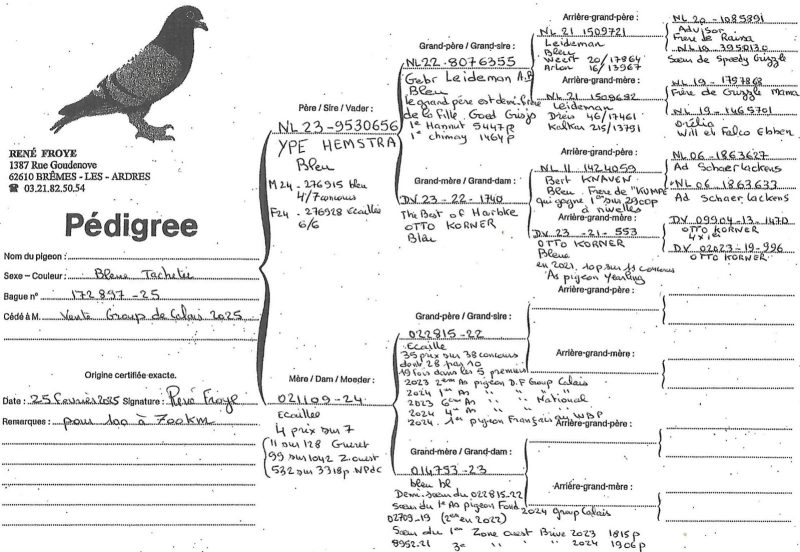 RENÉ FROYE
1387 Rue Goudenove
62610 BRÊMES - LES - ARDRES
☎ 03.21.82.50.54
Pédigree
Nom du pigeon :
Sexe – Couleur : Bleue Tachetée
Bague n° 172897-25
Cédé à M. Vente Group de Calais 2025
Origine certifiée exacte.
Date : 25 Février 2025 Signature : René Froye
Remarques : pour 100 à 700km
Père / Sire / Vader :
NL 23-9530656
YPE HEMSTRA
Bleu
M24 - 276915 bleu
4/7 concours
F24 - 276928 Ecaillée
6/6
Mère / Dam / Moeder :
021109-24
Ecaillée
4 prix sur 7
11 sur 128 Gueret
99 sur 1042 Z.ouest
532 sur 3318p NPdC
Grand-père / Grand-sire :
NL 22-8076355
Gebr Leideman A.P
Bleu
le grand père est demi-frère
de la Fille Goed Grijs
1e Hannut 5447p
1e chimay 1464p
Grand-mère / Grand-dam :
DV 23 - 22 - 1740
The Best of Haribke
OTTO KORNER
Blau
Grand-père / Grand-sire :
022815-22
Ecaille
35 prix sur 38 concours
dont 28 par 10
19 fois dans les 5 premiers
2023 2eme As pigeon D.F Group Calais
2024 1er As " " " "
2023 6eme As " " National
2024 4e As " " "
2024. 1er pigeon Français au WBP
Grand-mère / Grand-dam :
014753-23
bleu bl
Demi-sœur du 022815-22
Sœur du 1er As pigeon Fond 2024 group Calais
02709-19 (2es en 2022)
Sœur du 1er Zone ouest Brive 2023 1815p
8952.21 3e " " " 2024 1906p
Arrière-grand-père :
NL 21 1509721
Leideman
Bleu
Weert 20/17864
Arlon 16/13967
Arrière-grand-mère :
NL 21 1509692
Leideman
Dreis 46/17461
Kalkar 215/13791
Arrière-grand-père :
NL 11 1424059
Bert KNAVEN
Bleu Frère de "KUMPE"
qui gagne 1er sur 2900p
à nivelles
Arrière-grand-mère :
DV 23 - 21 - 553
OTTO KORNER
Bleue
en 2021, 10p sur 11 concours
As pigeon Yearling
Arrière-grand-père :
Arrière-grand-mère :
Arrière-grand-père :
Arrière-grand-mère :
NL 20 - 1085891
Advisor
Frère de Raissa
NL 19 3950130
Sœur de Speedy Grizzle
NL 19 - 1797868
Frère de Grizzle Mama
NL 19 - 1465701
Will et Falco Ebben
NL 06 - 1863627
Ad Schaerlackens
NL 06 - 1863633
Ad Schaerlackens
DV 09904-13-1470
OTTO KORNER
4x1er
DV 02023-19-996
OTTO KORNER